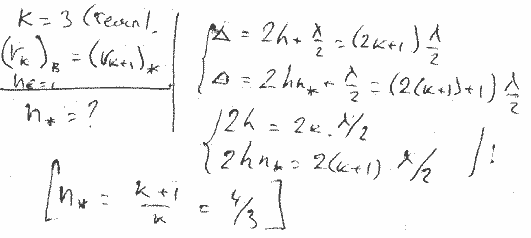 K = 3 (
(r_k)_B = (r_{k+1})_*
n_B = 1
n_* = ?
Δ = 2h + λ/2 = (2k+1) λ/2
Δ = 2hn_* + λ/2 = (2(k+1)+1) λ/2
2h = 2k · λ/2
2hn_* = 2(k+1) · λ/2 / :
[n_* = k+1/k = 4/3]